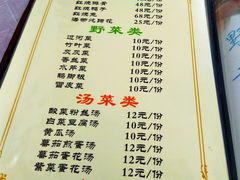 48元/份
红烧鸽子 48元/份
红烧兔 68元/份
25元/份
野菜类
过河菜 10元/份
竹叶菜 10元/份
灰灰菜 10元/份
香丝菜 10元/份
水芹菜 10元/份
鹅脚板 10元/份
富皮菜 10元/份
汤菜类
酸菜粉丝汤 12元/份
白菜豆腐汤 12元/份
黄瓜汤 10元/份
蕃茄煎蛋汤 12元/份
蕃茄蛋花汤 10元/份
紫菜蛋花汤 12元/份